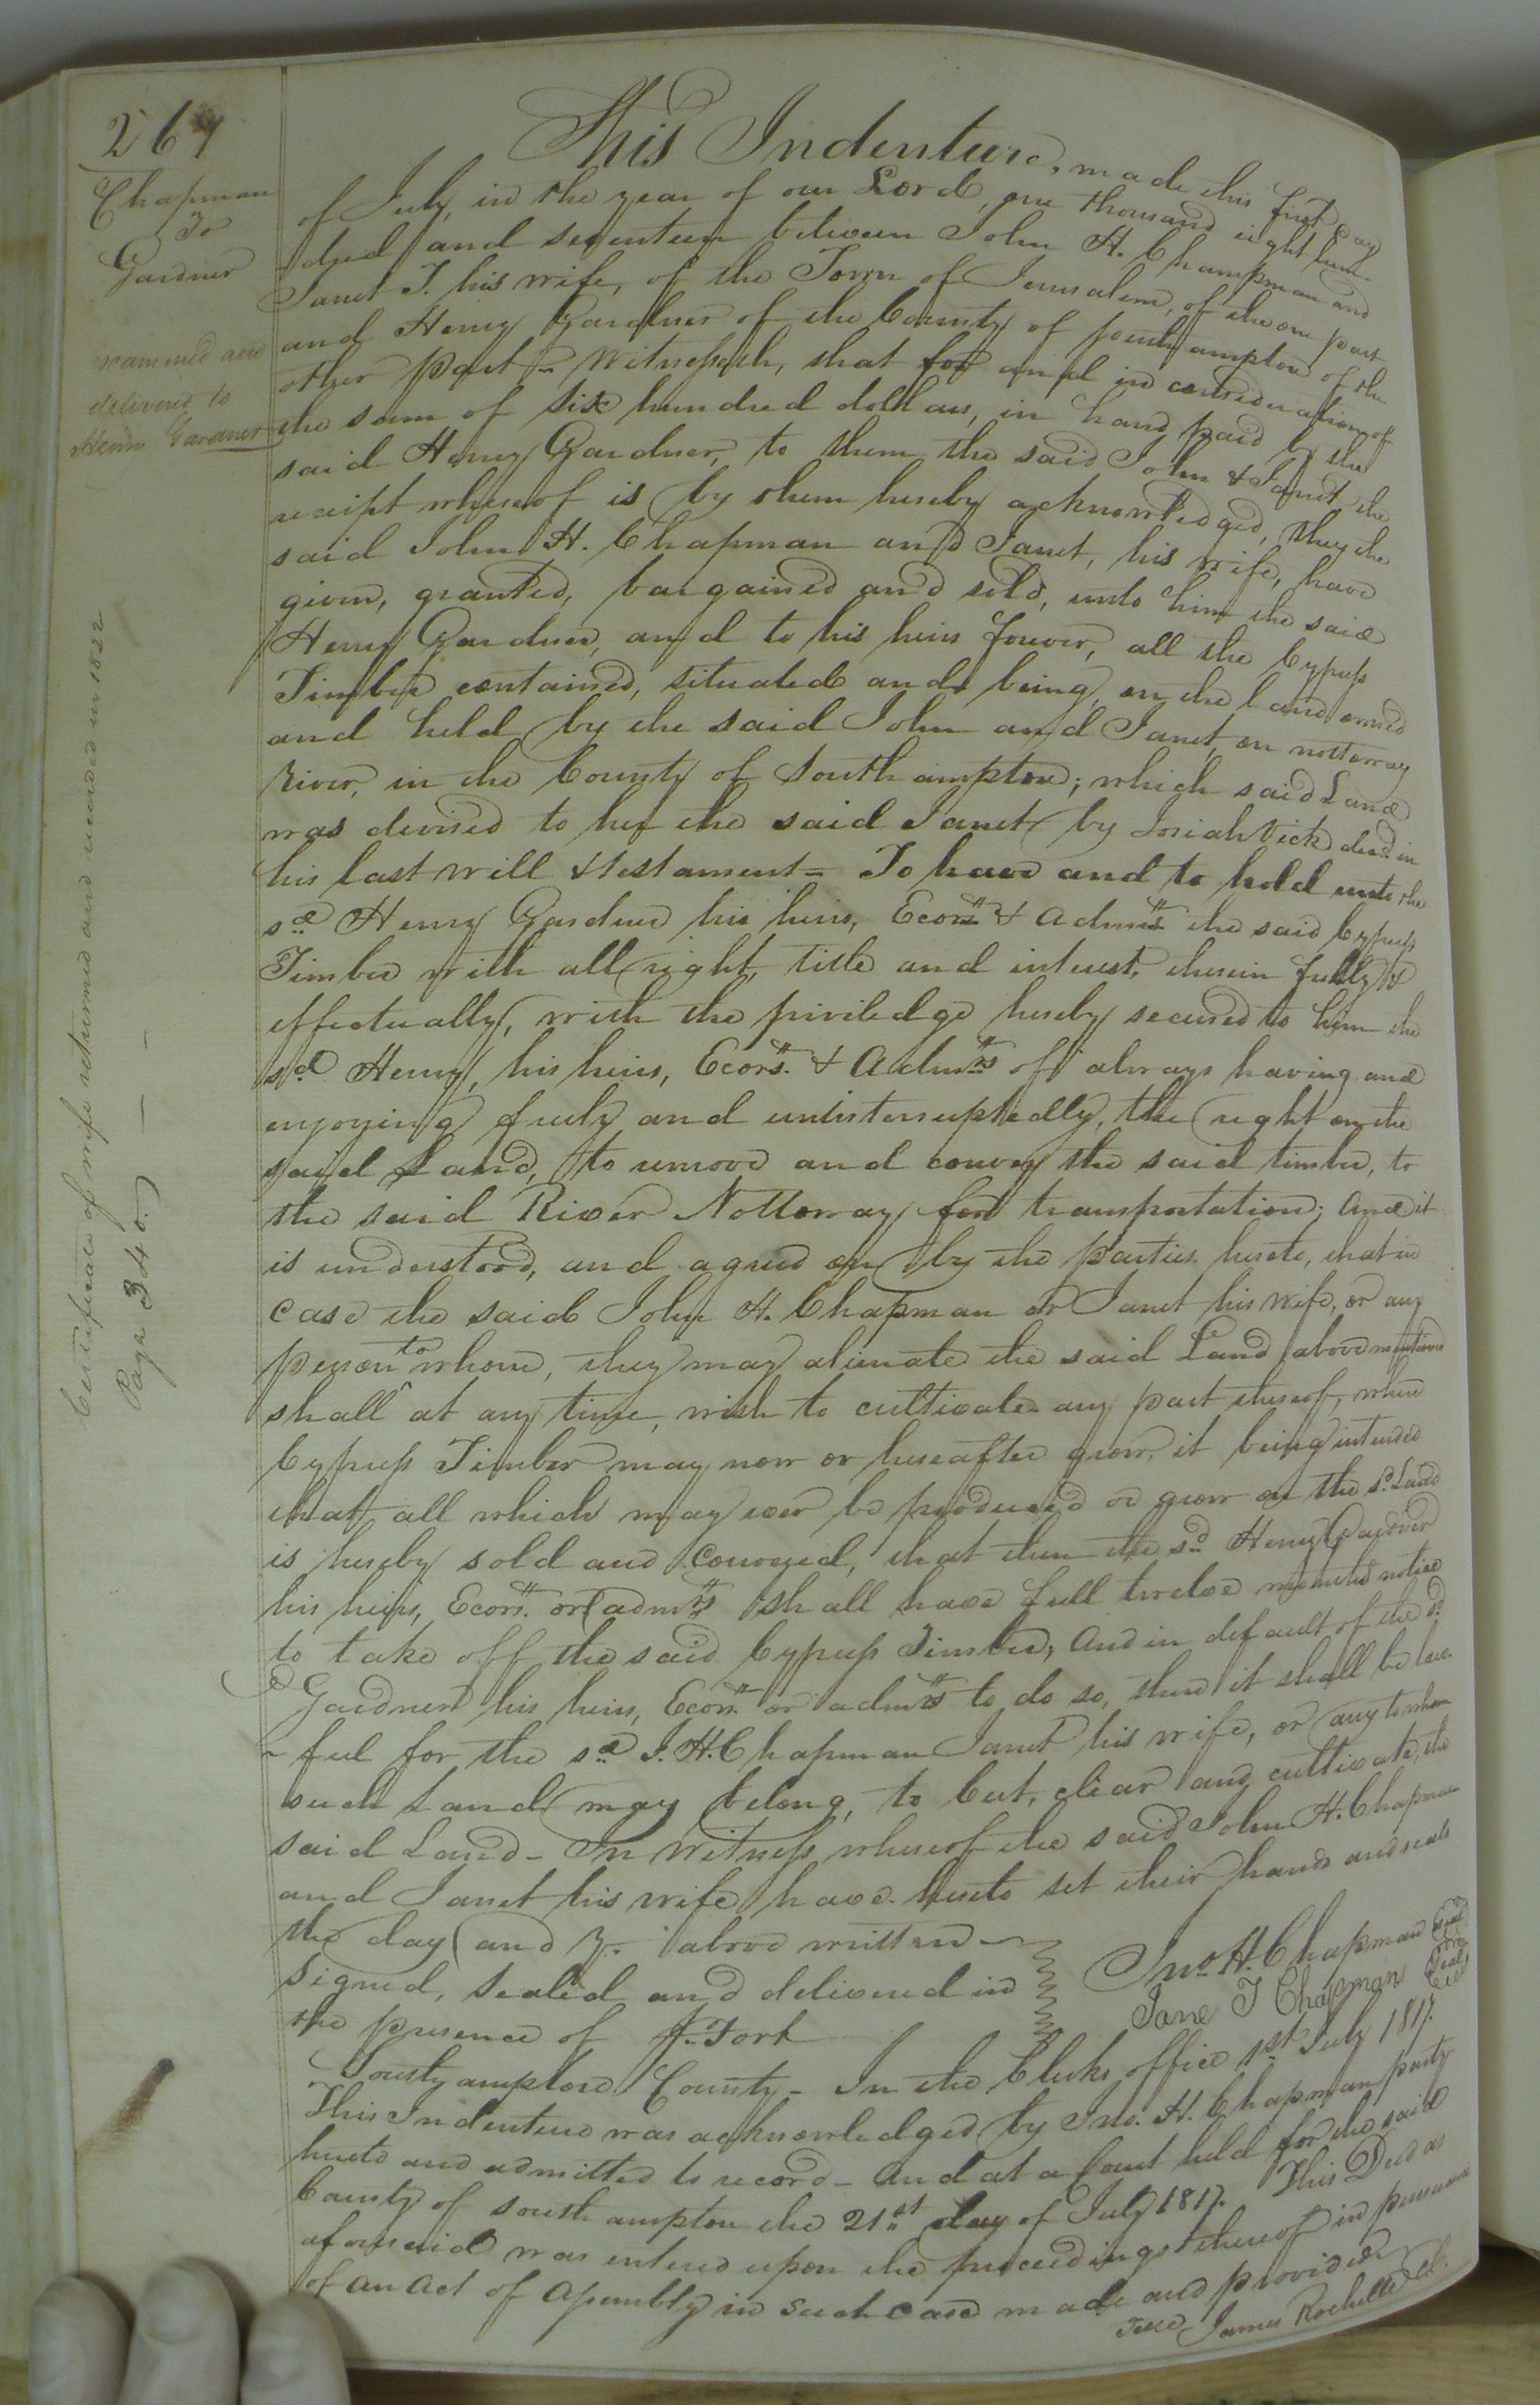 267
Chapman
To
Gardner
examined and
delivered to
Henry Gardner
Certificate of wife returned and recorded in 1822
Page 340.
This Indenture, made this first day
of July, in the year of our Lord, one thousand eight hun-
dred and seventeen between John H. Champman and
Janet T. his wife, of the Town of Jerusalem, of the one part
and Henry Gardner of the County of Southampton of the
other part - Witnesseth, that for and in consideration of
the sum of six hundred dollars, in hand paid by the
said Henry Gardner, to them the said John & Janet the
receipt whereof is by them hereby acknowledged, they the
said John H. Chapman and Janet, his wife, have
given, granted, bargained and sold, unto him the said
Henry Gardner, and to his heirs forever, all the Cypress
Timber contained, situated and being, on the land owned
and held by the said John and Janet on nottoway
River, in the County of Southampton; which said Land
was devised to her the said Janet by Josiah Vick decd. in
his last will & testament - To have and to hold unto the
sd. Henry Gardner his heirs, Ecors. & Admrs. the said Cypress
Timber with all right, title and interest, therein fully &
effectually, with the priviledge hereby secured to him the
sd. Henry, his heirs, Ecors. & Admrs of always having and
enjoying freely and uninterruptedly, the right on the
said Land, to remove and convey the said timber, to
the said River Nottoway for transportation; And it
is understood, and agreed on by the parties hereto, that in
case the said John H. Chapman or Janet his wife, or any
person to whom, they may alienate the said Land above mentioned
shall at any time, wish to cultivate any part thereof, where
Cypress Timber may now or hereafter grow, it being intended
that all which may ever be produced or grow on the sd. Land
is hereby sold and conveyed, that then the sd. Henry Gardner
his heirs, Ecors. or admrs shall have full twelve months notice
to take off the said Cypress Timber; And in default of the sd.
Gardner his heirs, Ecors. or admrs to do so, then it shall be law-
ful for the sd. J. H. Chapman Janet his wife, or any to whom
such Land may belong, to Cut, clear and cultivate, the
said Land - In Witness whereof the said John H. Chapman
and Janet his wife have hereto set their hands and seals
the day and Yr. above written -
Signed, Sealed and delivered in
the presence of Jn. Fort
Jno. H. Chapman Seal
Jane T Chapman Seal
Southampton County - In the Clerks office 1st July 1817.
This Indenture was acknowledged by Jno. H. Chapman party
hereto and admitted to record - And at a Court held for the said
County of Southampton the 21st day of July 1817. This Deed as
aforesaid was entered upon the proceedings thereof in pursuance
of an Act of Assembly in such case made and provided
Teste James Rochelle Cl.